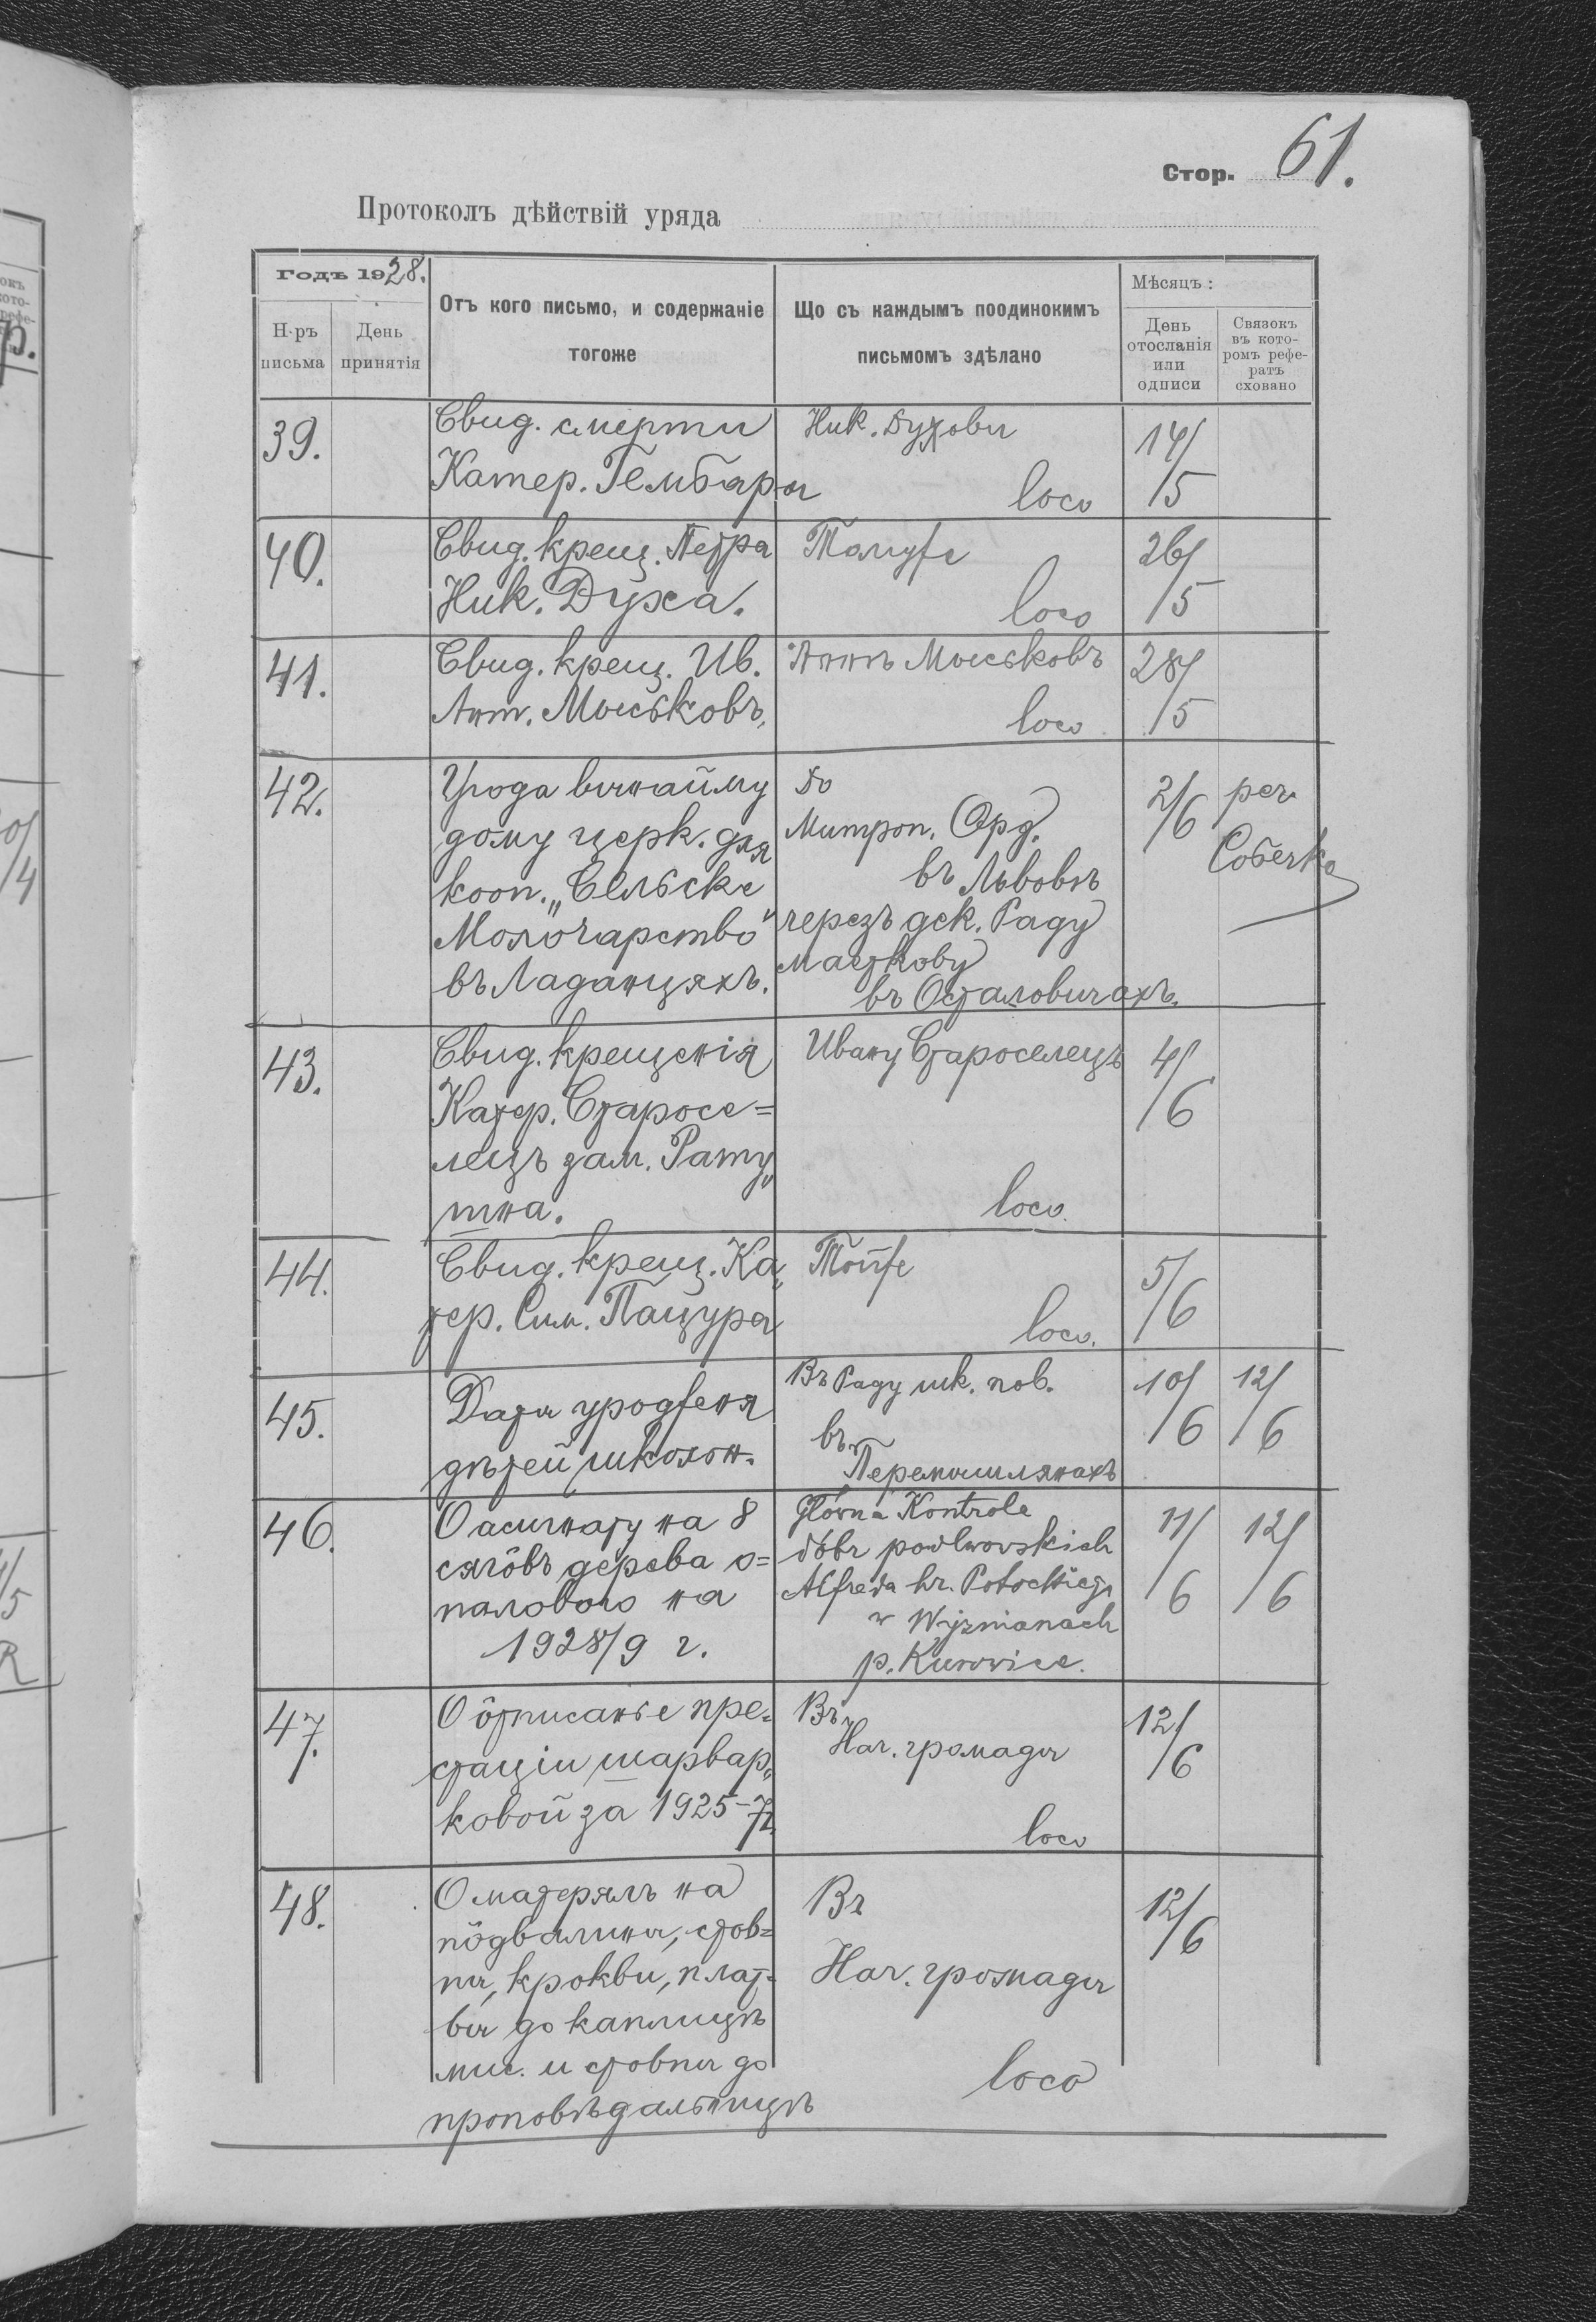 Стор. 61.
Протоколъ дѣйствій уряда
Годъ 1928.
Н-ръ письма
День принятія
Отъ кого письмо, и содержаніе
тогоже
Що съ каждымъ поодинокимъ
письмомъ здѣлано
Мѣсяцъ:
День
отосланія
или
одписи
Связокъ
въ кото-
ромъ рефе-
ратъ
сховано
39.
Свид. смерти
Катер. Гембары
Ник. Духовы
loco
14/5
40.
Свид. крещ. Петра
Ник. Духа.
loco
26/5
41.
Свид. крещ. Ив.
Ант. Мыськовъ,
Аннѣ Мыськовъ
loco
28/5
42.
Угода вынайму
дому церк. для
кооп. „Сельске
Молочарство"
въ Ладанцяхъ.
До
Митроп. Орд.
въ Львовѣ
черезъ дек. Раду
маєткову
въ Осталовичахъ.
2/6
реч.
43.
Свид. крещенія
Катер. Старосе=
лецъ зам. Рату„
шна.
Ивану Староселецъ
loco.
4/6
44.
Свид. крещ. Ка„
тер. Сим. Пацура
Тойже
loco.
5/6
45.
Даты уродженя
дѣтей школьн.
Въ Раду шк. пов.
въ
Перемышлянахъ
10/6
12/6
46.
О асигнату на 8
сягôвъ дерева о=
палового на
1928/9 г.
Główna Kontrola
dóbr podlwowskich
Alfreda hr. Potockiego
w Wyżnianach
p. Kurowice.
11/6
12/6
47.
О ôтписаньє пре=
стаціи шарвар„
ковой за 1925-7.
Въ
Нач. громады
loco
12/6
48.
О матеріялъ на
пôдвалины, стов=
пы, крокви, плат-
вы до каплицѣ
мис. и стовпы до
проповѣдальницѣ
Въ
Нач. громады
loco
12/6